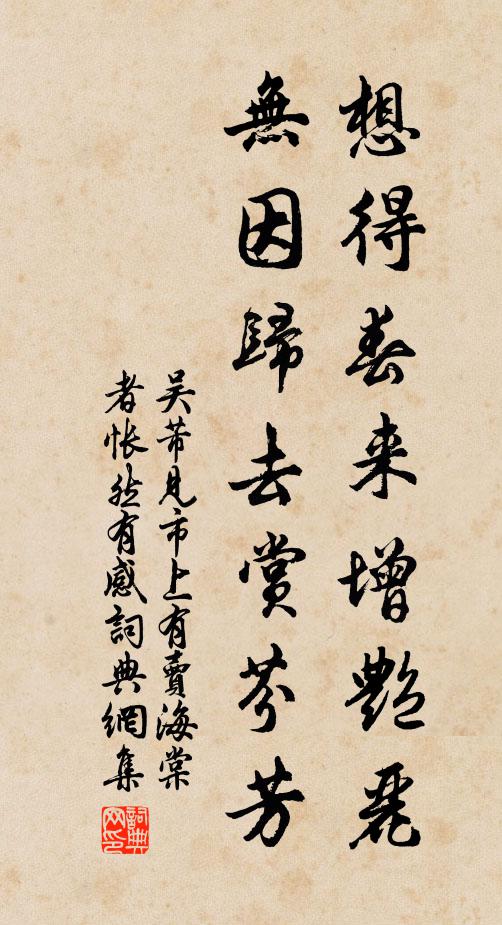 想得春来增艷麗
無因歸去賞芬芳
吴芾見市上有賣海棠
者悵然有感詞典網集
詞典
网印